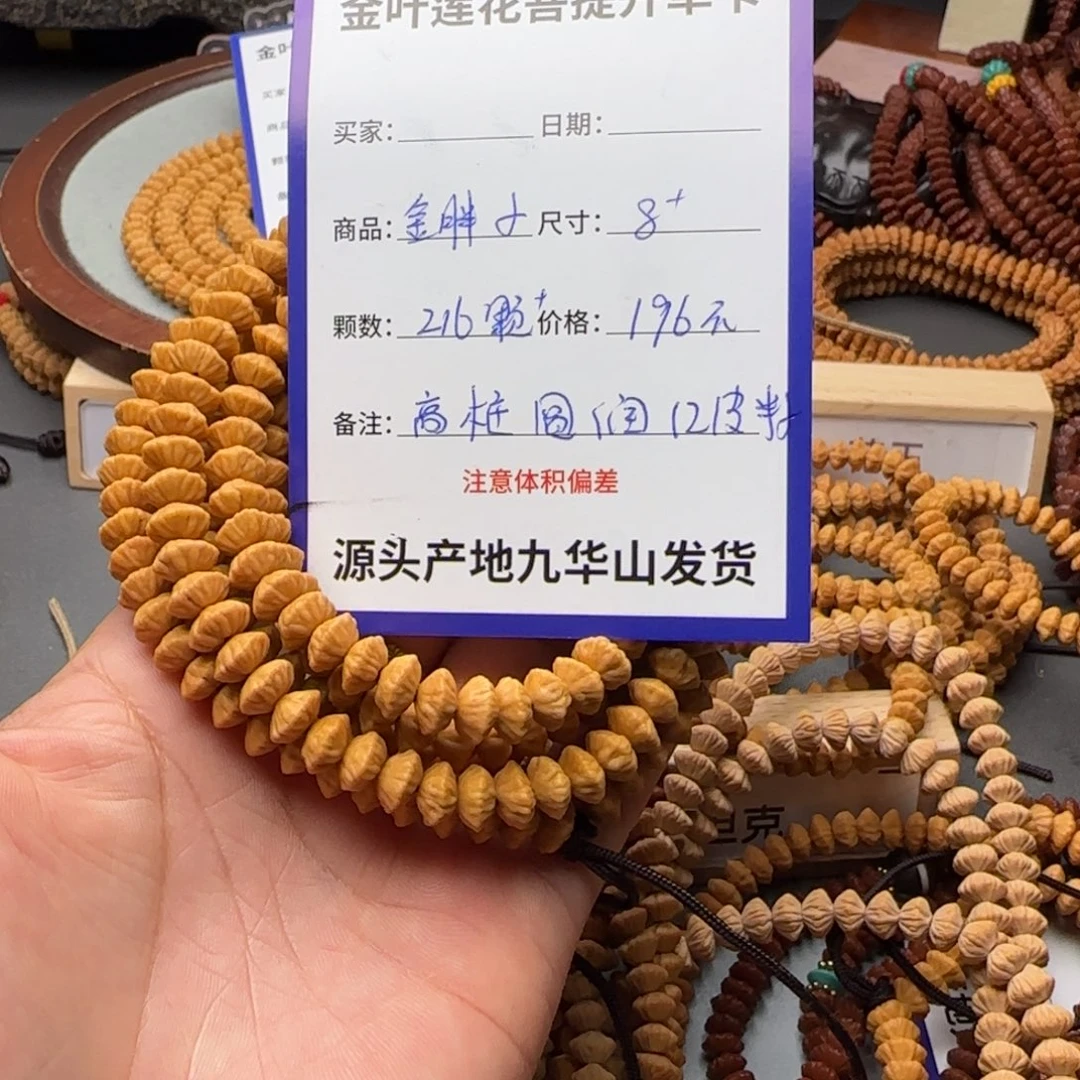 金叶莲花菩提升单卡
买家: 日期:
商品: 金胖子 尺寸: 8+
颗数: 216颗+ 价格: 196元
备注: 高桩 圆润 口皮料
注意体积偏差
源头产地九华山发货
金叶
坦克